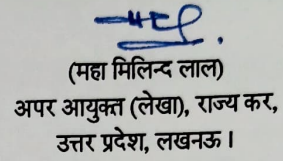 (महा मिलिन्द लाल)
अपर आयुक्त (लेखा), राज्य कर,
उत्तर प्रदेश, लखनऊ ।